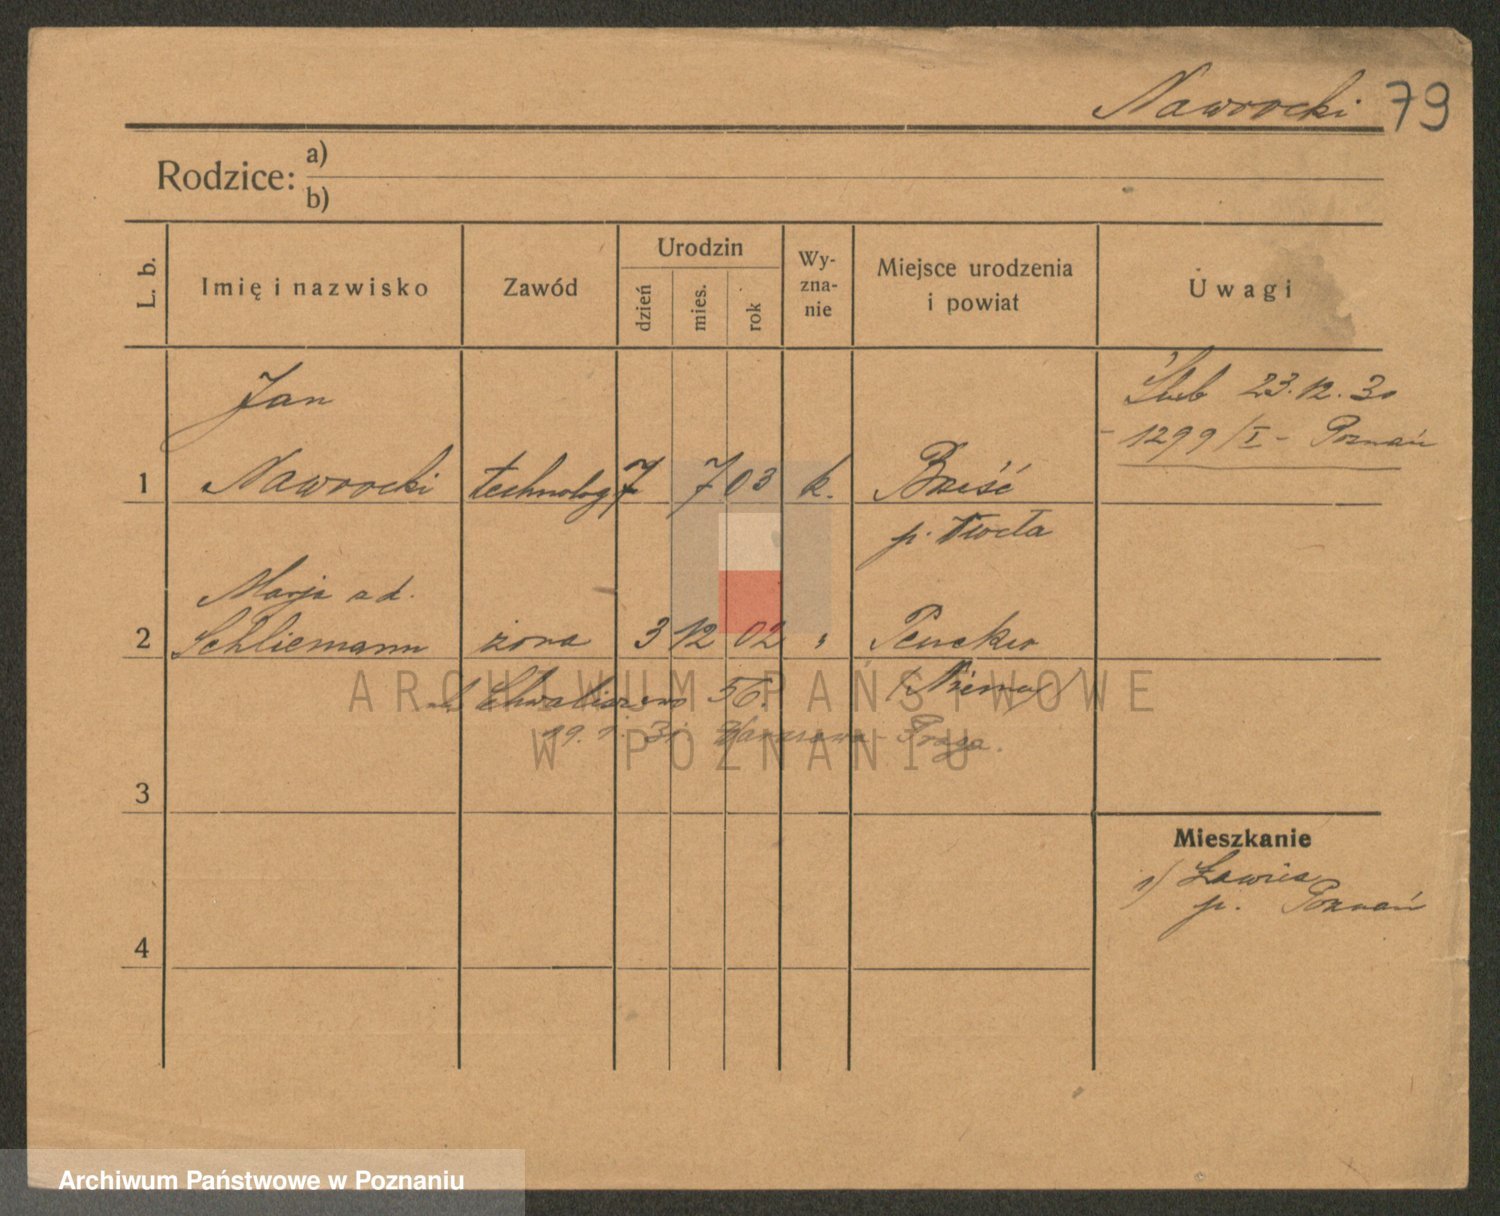 Nawrocki 79
Rodzice: a)
b)
L. b.
Imię i nazwisko
Zawód
Urodzin
dzień
mies.
rok
Wy-
zna-
nie
Miejsce urodzenia
i powiat
Uwagi
Jan
Ślub 23.12.30
- 1299/I - Poznań
1 Nawrocki technolog 7 7 03 k. Brześć
p.
Marja z d.
2 Schliemann żona 3 12 02 "
Chwaliszewo 56.
19. 1. 31 Warszawa - Praga.
ARCHIWUM PAŃSTWOWE
W POZNANIU
3
Mieszkanie
1) Ławica
p. Poznań
4
Archiwum Państwowe w Poznaniu